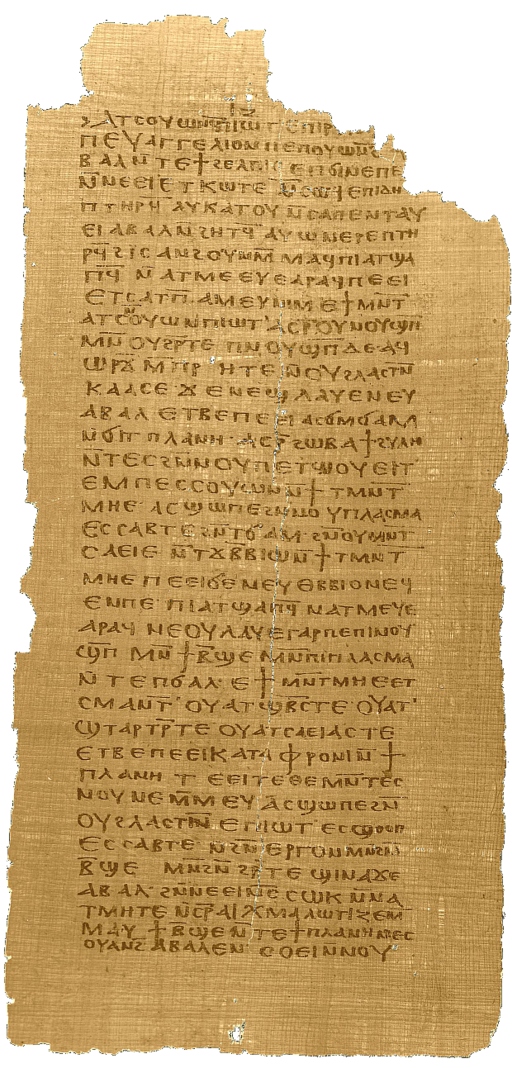 ⲓⲍ
ϩⲁⲧⲥⲟⲩⲱⲛ ⲡⲓⲱⲧ ⲉⲡⲓⲣ
ⲡⲉⲩⲁⲅⲅⲉⲗⲓⲟⲛ ⲡⲉ ⲡⲟⲩⲱⲛϩ
ⲃⲁⲗ ⲛ̄ⲧⲉ ϯϩⲉⲗⲡⲓⲥ ⲉⲡϭⲓⲛⲉ ⲡⲉ
ⲛ̄ⲛⲉⲉⲓ ⲉⲧⲕⲱⲧⲉ ⲛ̄ⲥⲱϥ ⲉⲡⲓⲇⲏ
ⲡⲧⲏⲣϥ ⲁⲩⲕⲁⲧⲟⲩ ⲛ̄ⲥⲁ ⲡⲉⲛⲧⲁⲩ
ⲉⲓ ⲁⲃⲁⲗ ⲛ̄ϩⲏⲧϥ ⲁⲩⲱ ⲛⲉⲣⲉ ⲡⲧⲏ
ⲣϥ̄ ϩⲓⲥⲁⲛϩⲟⲩⲛ ⲙ̄ⲙⲁϥ ⲡⲓⲁⲧϣⲁ
ⲡϥ̄ ⲛ̄ⲁⲧⲙⲉⲉⲩⲉ ⲁⲣⲁϥ ⲡⲉⲉⲓ
ⲉⲧⲥⲁⲧⲡ̄ ⲁⲙⲉⲩ ⲛⲓⲙ ⲉϯⲙⲛ̄ⲧ
ⲁⲧⲥⲟⲩⲱⲛ ⲡⲓⲱⲧ ⲁⲥⲣ̄ ⲟⲩⲛⲟⲩϣⲡ̄
ⲙⲛ̄ ⲟⲩϩⲣ̄ⲧⲉ ⲡⲛⲟⲩϣⲡ̄ ⲇⲉ ⲁϥ
ⲱⲣϫ̄ ⲙ̄ⲡⲣⲏⲧⲉ ⲛ̄ⲟⲩϩⲗⲁⲥⲧⲛ̄
ⲕⲁⲁⲥⲉ ϫⲉ ⲛⲉϣ ⲗⲁⲩⲉ ⲛⲉⲩ
ⲁⲃⲁⲗ ⲉⲧⲃⲉ ⲡⲉⲉⲓ ⲁⲥϭⲙ̄ϭⲁⲙ
ⲛ̄ϭⲓ ⲧⲡⲗⲁⲛⲏ ⲁⲥⲣ̄ ϩⲱⲃ ⲁϯϩⲩⲗⲏ
ⲛ̄ⲧⲉⲥ ϩⲛ̄ⲛ ⲟⲩⲡⲉⲧϣⲟⲩⲉⲓⲧ
ⲉⲙⲡⲉⲥⲥⲟⲩⲱⲛ ⲛ̄ϯⲧⲙⲛ̄ⲧ
ⲙⲏⲉ ⲁⲥϣⲱⲡⲉ ϩⲛ̄ⲛⲟⲩⲡⲗⲁⲥⲙⲁ
ⲉⲥⲥⲁⲃⲧⲉ ϩⲛ̄ ⲧϭⲁⲙ ϩⲛ̄ ⲟⲩⲙⲛ̄ⲧ
ⲥⲁⲉⲓⲉ ⲛ̄ⲧϫⲃ̄ⲃⲓⲱ ⲛ̄ϯⲧⲙⲛ̄ⲧ
ⲙⲏⲉ ⲡⲉⲉⲓ ϭⲉ ⲛⲉⲩⲑⲃ̄ⲃⲓⲟ ⲛⲉϥ
ⲉⲛ ⲡⲉ ⲡⲓⲁⲧϣⲁⲡϥ̄ ⲛ̄ⲁⲧⲙⲉⲩⲉ
ⲁⲣⲁϥ ⲛⲉⲟⲩⲗⲁⲩⲉ ⲅⲁⲣ ⲡⲉ ⲡⲓⲛⲟⲩ
ϣⲡ̄ ⲙⲛ̄ ϯⲃ̄ϣⲉ ⲙⲛ̄ ⲡⲓⲡⲗⲁⲥⲙⲁ
ⲛ̄ⲧⲉ ⲡϭⲁⲗ ⲉϯⲙⲛ̄ⲧⲙⲏⲉ ⲉⲧ
ⲥⲙⲁⲛⲧ̄ ⲟⲩⲁⲧϣⲃ̄ⲧⲥ ⲧⲉ ⲟⲩⲁⲧ
ϣⲧⲁⲣⲧⲣ̄ ⲧⲉ ⲟⲩⲁⲧⲥⲁⲉⲓⲁⲥ ⲧⲉ
ⲉⲧⲃⲉ ⲡⲉⲉⲓ ⲕⲁⲧⲁⲫⲣⲟⲛⲓ ⲛ̄ϯ
ⲡⲗⲁⲛⲏ ⲧⲉⲉⲓ ⲧⲉ ⲑⲉ ⲙⲛ̄ⲧⲉⲥ
ⲛⲟⲩⲛⲉ ⲙ̄ⲙⲉⲩ ⲁⲥϣⲱⲡⲉ ϩⲛ̄ⲛ
ⲟⲩϩⲗⲁⲥⲧⲛ̄ ⲉⲡⲓⲱⲧ ⲉⲥϣⲟⲟⲡ
ⲉⲥⲥⲁⲃⲧⲉ ⲛ̄ϩⲛ̄ⲉⲣⲅⲟⲛ ⲙⲛ̄ ϩⲛ̄
ⲃ̄ϣⲉ ⲙⲛ̄ ϩⲛ̄ϩⲣ̄ⲧⲉ ϣⲓⲛⲁ ϫⲉ
ⲁⲃⲁⲗ ϩⲛ̄ ⲛⲉⲉⲓ ⲛ̄ⲥⲥⲱⲕ ⲛ̄ⲛⲁ
ⲧⲙⲏⲧⲉ ⲛ̄ⲥⲣ̄ⲁⲓⲭⲙⲁⲗⲱⲧⲓⲍⲉ ⲙ̄
ⲙⲁⲩ ϯⲃ̄ϣⲉ ⲛ̄ⲧⲉ ϯⲡⲗⲁⲛⲏ ⲛⲉⲥ
ⲟⲩⲁⲛϩ̄ ⲁⲃⲁⲗ ⲉⲛ ⲥⲟⲉⲓ ⲛ̄ⲛⲟⲩ